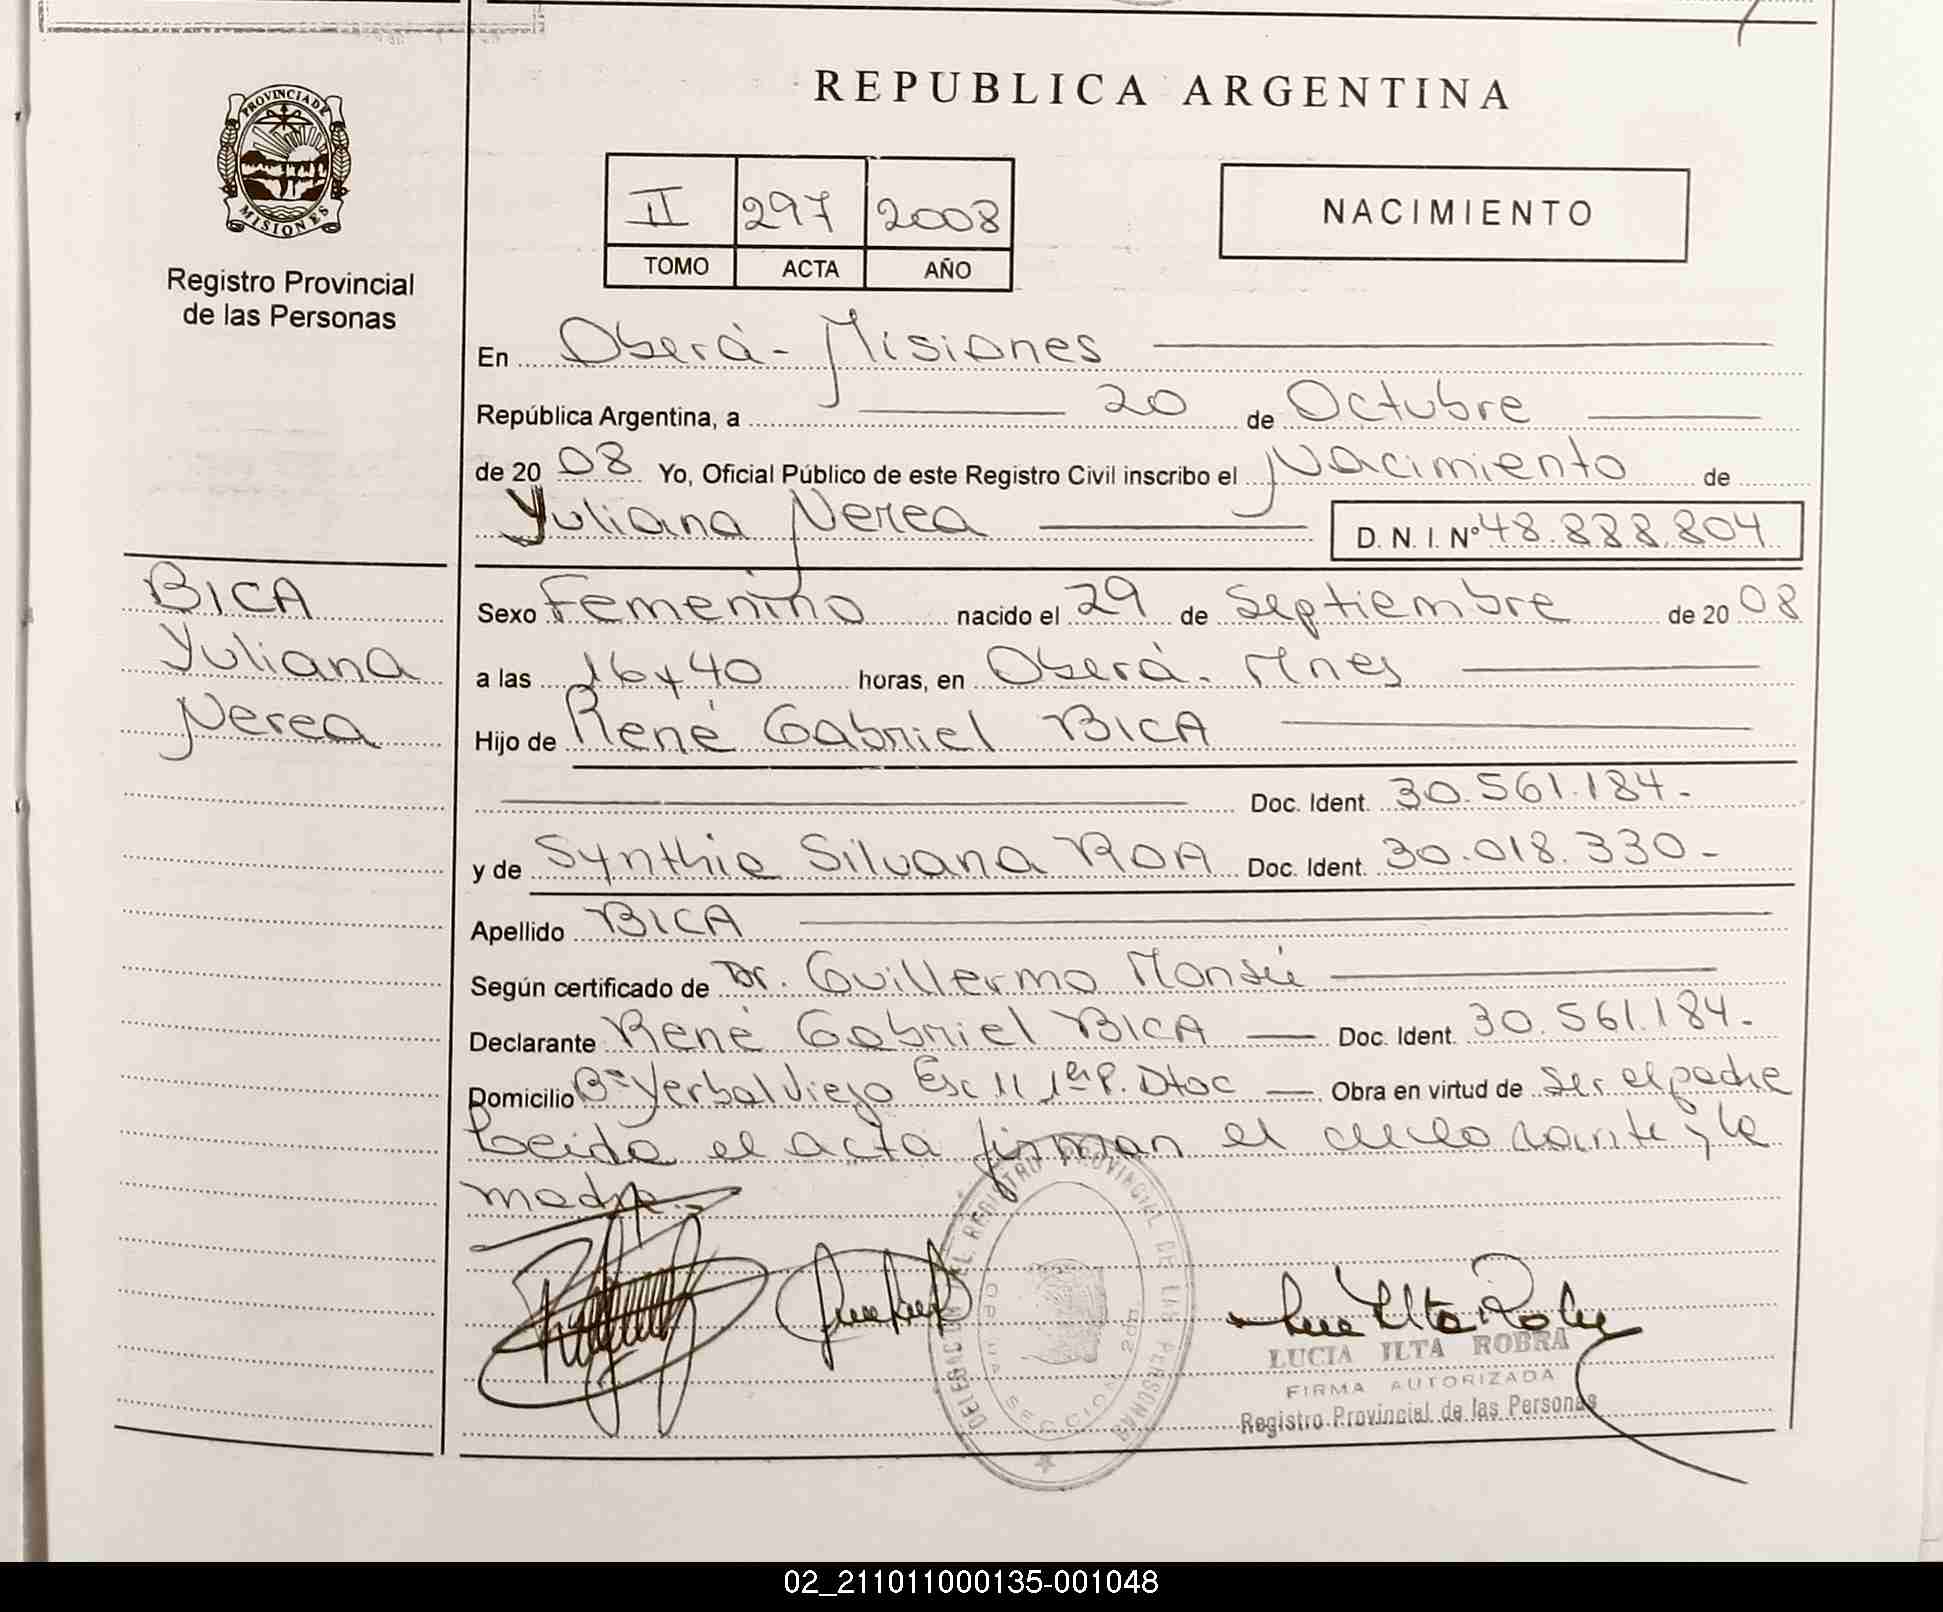 REPUBLICA ARGENTINA
PROVINCIA DE
MISIONES
Registro Provincial
de las Personas
II 297 2008
TOMO ACTA AÑO
NACIMIENTO
En Oberá - Misiones
República Argentina, a 20 de Octubre
de 20 08 Yo, Oficial Público de este Registro Civil inscribo el Nacimiento de
Yuliana Nerea D. N. I. Nº 48.888.804
BICA
Yuliana
Nerea
Sexo Femenino nacido el 29 de Septiembre de 20 08
a las 16 y 40 horas, en Oberá - Mnes
Hijo de René Gabriel BICA
Doc. Ident. 30.561.184.-
y de Synthia Silvana ROA Doc. Ident. 30.018.330-
Apellido BICA
Según certificado de Dr. Guillermo
Declarante René Gabriel BICA Doc. Ident. 30.561.184.-
Domicilio Bº Yerbal Viejo Esc 11 Obra en virtud de ser el padre
Leida el acta firman el declarante y la
madre.-
DELEGACION DEL REGISTRO PROVINCIAL DE LAS PERSONAS
SECCION 2da
LUCIA ILTA ROBRA
FIRMA AUTORIZADA
Registro Provincial de las Personas
02_211011000135-001048